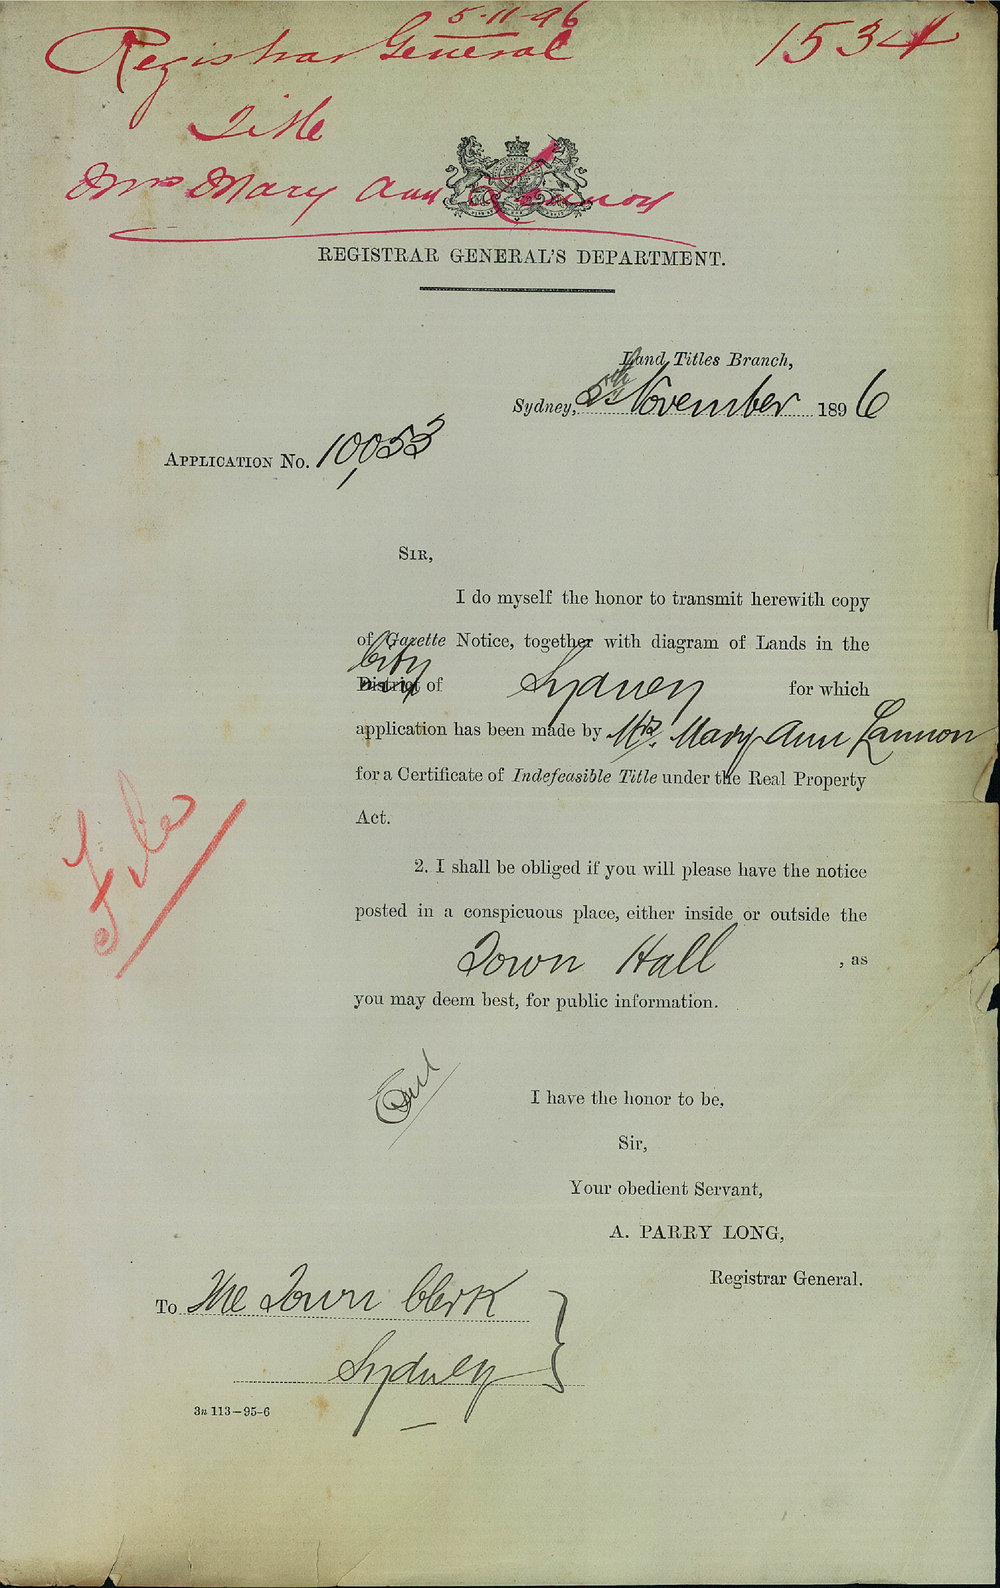 5-11-96
Registrar General 1534
Title
Mrs Mary Ann Lannon
REGISTRAR GENERAL'S DEPARTMENT.
Land Titles Branch,
Sydney, November 1896
APPLICATION No. 10,053
SIR,
I do myself the honor to transmit herewith copy
of Gazette Notice, together with diagram of Lands in the
City
District of Sydney for which
application has been made by Mrs. Mary Ann Lannon
for a Certificate of Indefeasible Title under the Real Property
Act.
File
2. I shall be obliged if you will please have the notice
posted in a conspicuous place, either inside or outside the
Town Hall , as
you may deem best, for public information.
I have the honor to be,
Sir,
Your obedient Servant,
A. PARRY LONG,
Registrar General.
To The Town Clerk
Sydney
3n 113-95-6